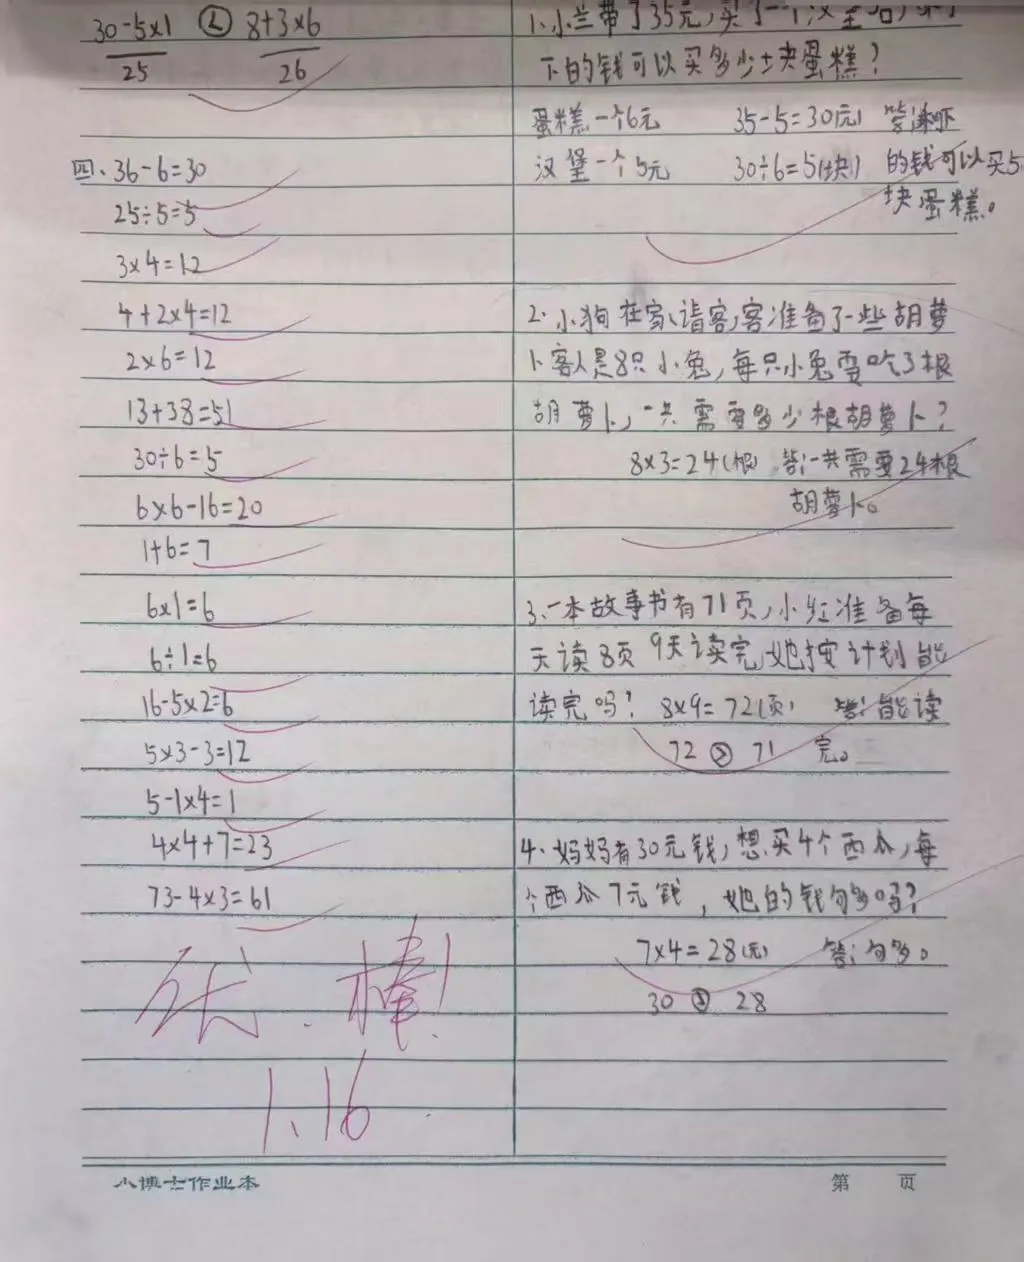 30-5×1 < 8+3×6
25 26
四、36-6=30
25÷5=5
3×4=12
4+2×4=12
2×6=12
13+38=51
30÷6=5
6×6-16=20
1+6=7
6×1=6
6÷1=6
16-5×2=6
5×3-3=12
5-1×4=1
4×4+7=23
73-4×3=61
棒!
1.16
1、小兰带了35元,买了一个汉堡后,剩
下的钱可以买多少块蛋糕?
蛋糕一个6元 35-5=30(元) 答:剩下
汉堡一个5元 30÷6=5(块) 的钱可以买5
块蛋糕。
2、小狗在家请客,客准备了一些胡萝
卜客人是8只小兔,每只小兔要吃3根
胡萝卜,一共需要多少根胡萝卜?
8×3=24(根) 答:一共需要24根
胡萝卜。
3、一本故事书有71页,小红准备每
天读8页 9天读完,她按计划能
读完吗? 8×9=72(页) 答:能读
72 > 71 完。
4、妈妈有30元钱,想买4个西瓜,每
个西瓜7元钱,她的钱句多吗?
7×4=28(元) 答:句多。
30 > 28
小博士作业本 第 页